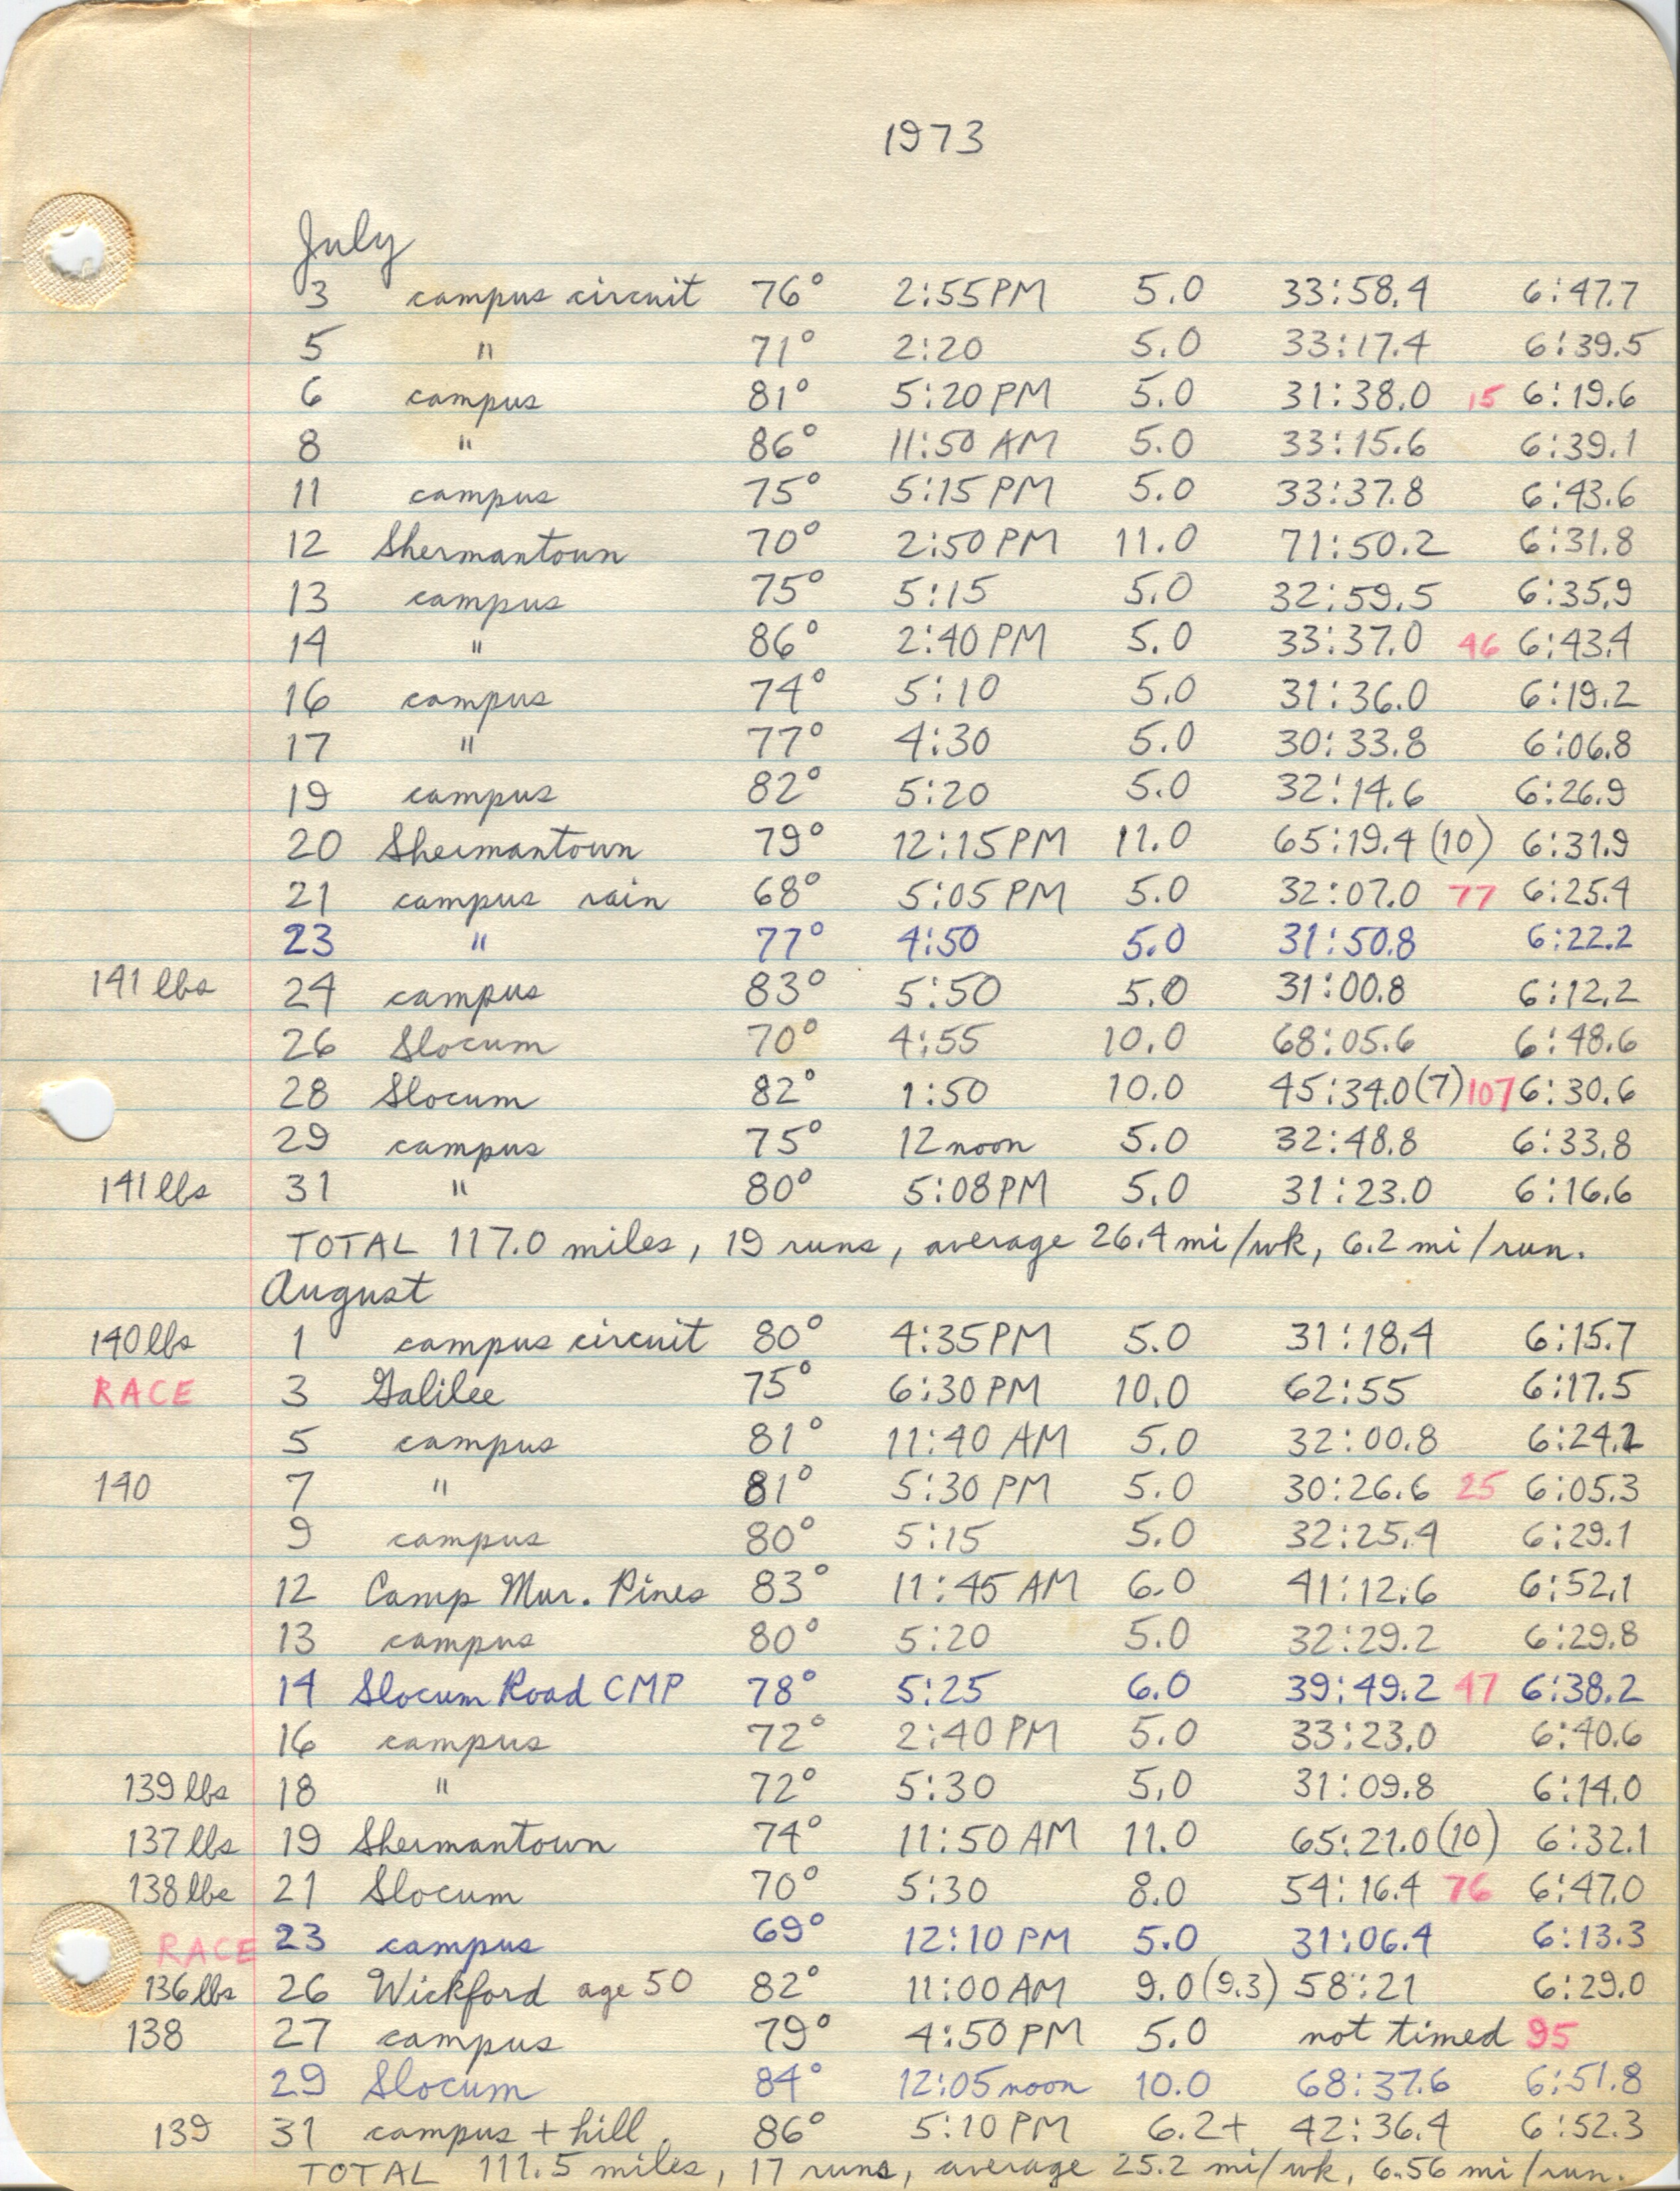 1973
July
3 campus circuit 76° 2:55 PM 5.0 33:58.4 6:47.7
5 " 71° 2:20 5.0 33:17.4 6:39.5
6 campus 81° 5:20 PM 5.0 31:38.0 15 6:19.6
8 " 86° 11:50 AM 5.0 33:15.6 6:39.1
11 campus 75° 5:15 PM 5.0 33:37.8 6:43.6
12 Shermantown 70° 2:50 PM 11.0 71:50.2 6:31.8
13 campus 75° 5:15 5.0 32:59.5 6:35.9
14 " 86° 2:40 PM 5.0 33:37.0 46 6:43.4
16 campus 74° 5:10 5.0 31:36.0 6:19.2
17 " 77° 4:30 5.0 30:33.8 6:06.8
19 campus 82° 5:20 5.0 32:14.6 6:26.9
20 Shermantown 79° 12:15 PM 11.0 65:19.4 (10) 6:31.9
21 campus rain 68° 5:05 PM 5.0 32:07.0 77 6:25.4
23 " 77° 4:50 5.0 31:50.8 6:22.2
141 lbs 24 campus 83° 5:50 5.0 31:00.8 6:12.2
26 Slocum 70° 4:55 10.0 68:05.6 6:48.6
28 Slocum 82° 1:50 10.0 45:34.0 (7) 107 6:30.6
29 campus 75° 12 noon 5.0 32:48.8 6:33.8
141 lbs 31 " 80° 5:08 PM 5.0 31:23.0 6:16.6
TOTAL 117.0 miles, 19 runs, average 26.4 mi/wk, 6.2 mi/run.
August
140 lbs 1 campus circuit 80° 4:35 PM 5.0 31:18.4 6:15.7
RACE 3 Galilee 75° 6:30 PM 10.0 62:55 6:17.5
5 campus 81° 11:40 AM 5.0 32:00.8 6:24.2
140 7 " 81° 5:30 PM 5.0 30:26.6 25 6:05.3
9 campus 80° 5:15 5.0 32:25.4 6:29.1
12 Camp Mur. Pines 83° 11:45 AM 6.0 41:12.6 6:52.1
13 campus 80° 5:20 5.0 32:29.2 6:29.8
14 Slocum Road CMP 78° 5:25 6.0 39:49.2 47 6:38.2
16 campus 72° 2:40 PM 5.0 33:23.0 6:40.6
139 lbs 18 " 72° 5:30 5.0 31:09.8 6:14.0
137 lbs 19 Shermantown 74° 11:50 AM 11.0 65:21.0 (10) 6:32.1
138 lbs 21 Slocum 70° 5:30 8.0 54:16.4 76 6:47.0
23 campus 69° 12:10 PM 5.0 31:06.4 6:13.3
RACE
136 lbs 26 Wickford age 50 82° 11:00 AM 9.0 (9.3) 58:21 6:29.0
138 27 campus 79° 4:50 PM 5.0 not timed 95
29 Slocum 84° 12:05 noon 10.0 68:37.6 6:51.8
139 31 campus + hill 86° 5:10 PM 6.2+ 42:36.4 6:52.3
TOTAL 111.5 miles, 17 runs, average 25.2 mi/wk, 6.56 mi/run.